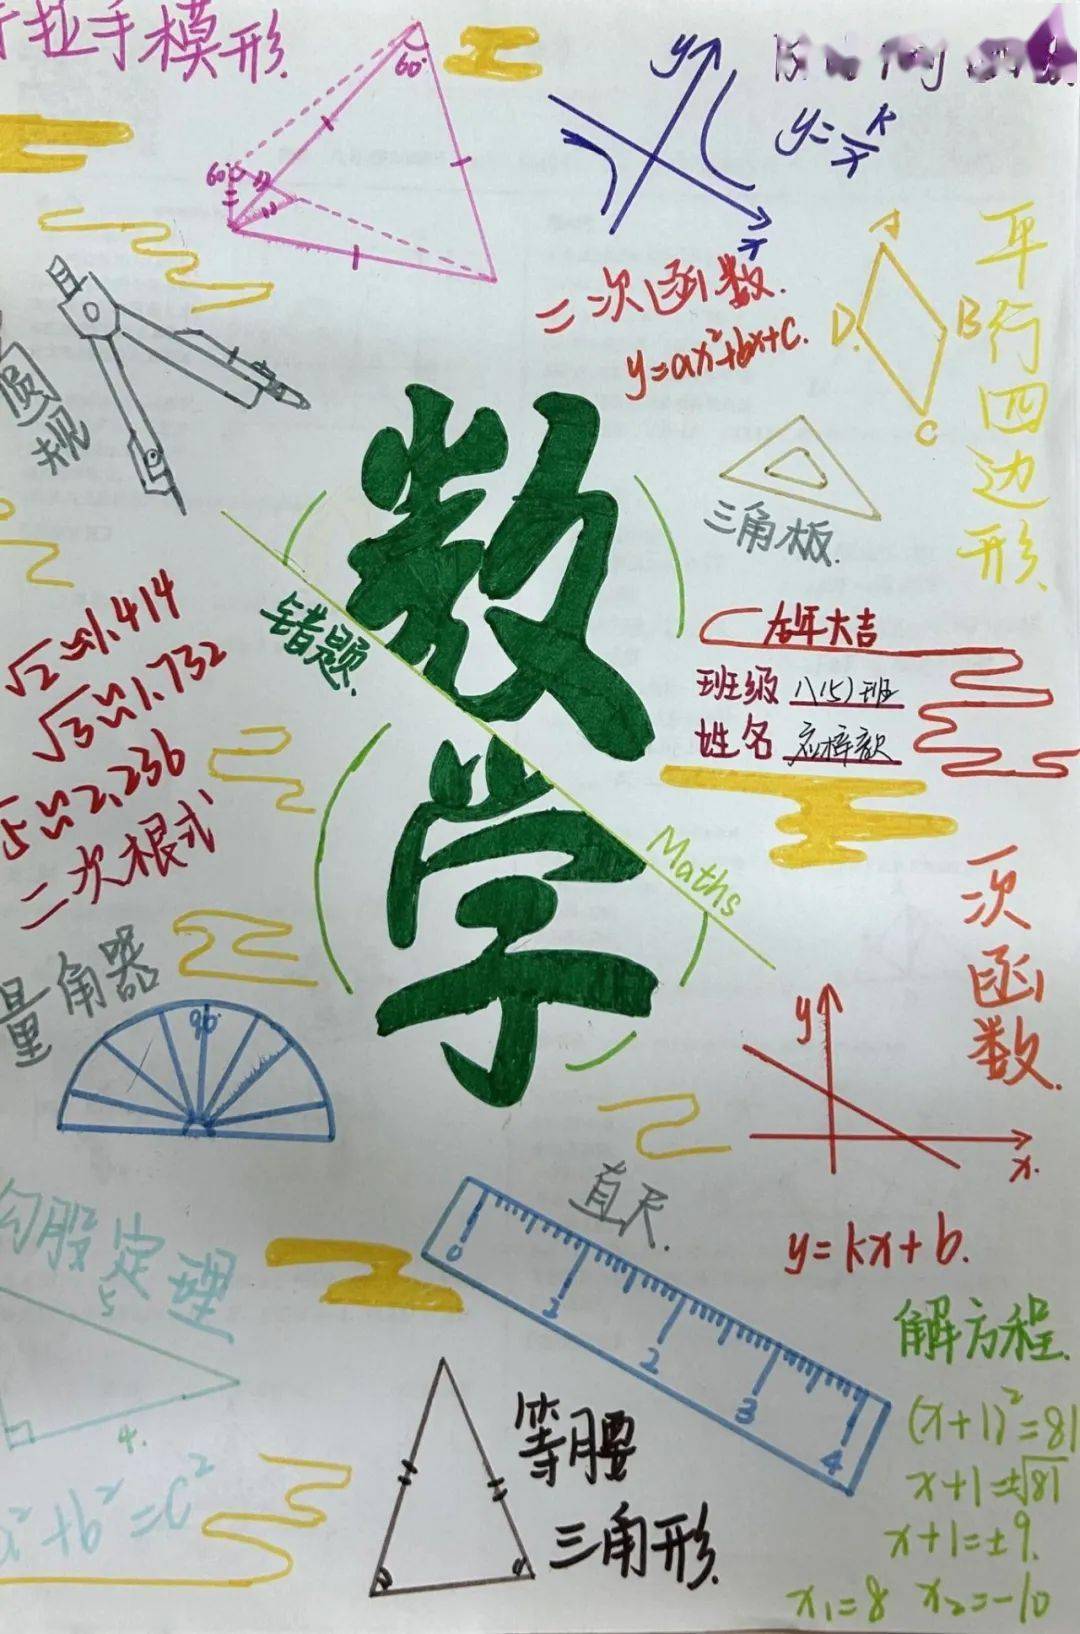 拉手模形.
60°
60°
y
x
y=k/x
二次函数.
y=ax²+bx+c.
A
B
C
D
平行四边形.
圆规
三角板.
数学
错题.
Maths
年大吉
班级 八(5)班
姓名
√2≈1.414
√3≈1.732
√5≈2.236
二次根式
量角器
90°
一次函数.
y
x.
y=kx+b.
直尺.
0 1 2 3 4
勾股定理
5
4.
a²+b²=c²
等腰
三角形.
解方程.
(x+1)²=81
x+1=±√81
x+1=±9.
x₁=8 x₂=-10